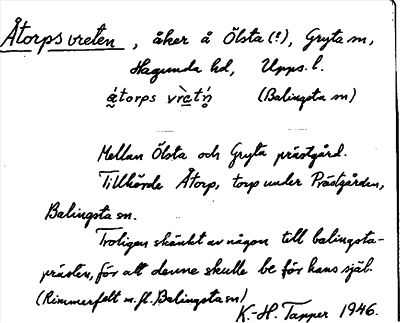 Åtorpsvreten, åker å Ölsta (?), Gryta sn,
Hagunda hd, Upps. l.
átorps vrètń̥ (Balingsta sn)
Mellan Ölsta och Gryta prästgård.
Tillhörde Åtorp, torp under Prästgården,
Balingsta sn.
Troligen skänkt av någon till balingsta-
prästen, för att denne skulle be för hans själ.
(Rimmerfelt m. fl. Balingsta sn)
K.-H. Tapper 1946.